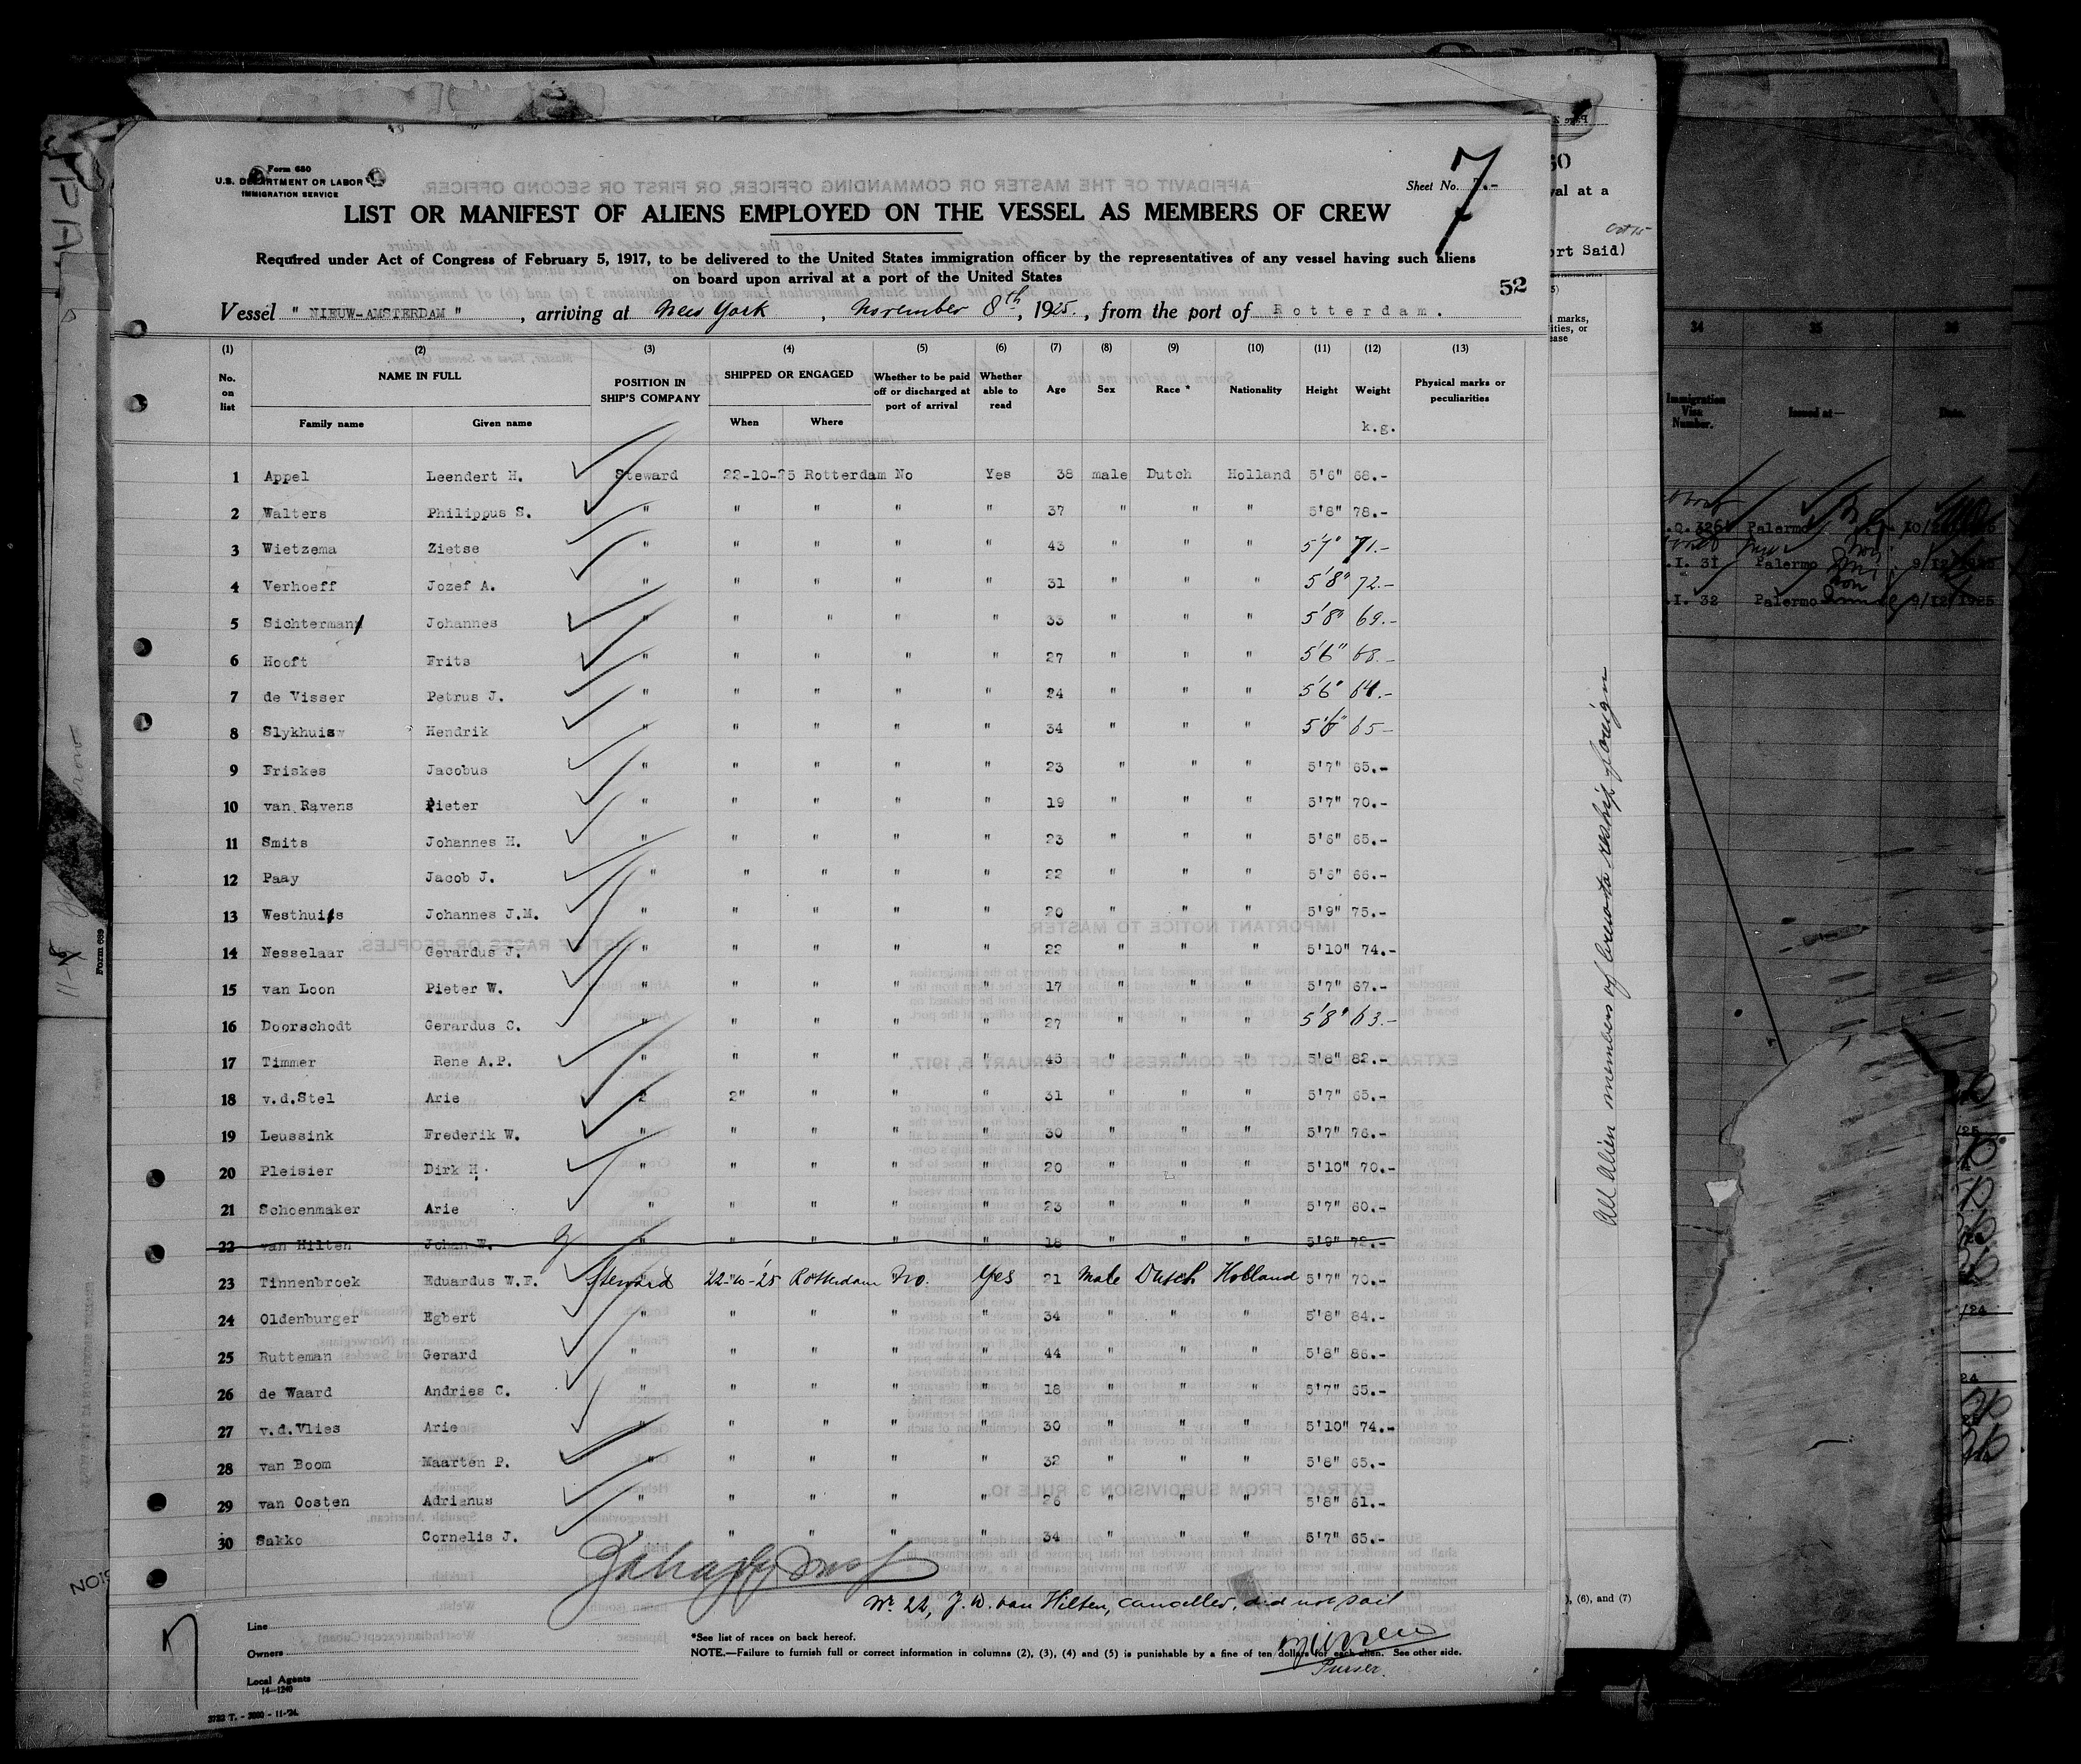 Form 680
U.S. DEPARTMENT OR LABOR
IMMIGRATION SERVICE
Sheet No. 7.-
7
LIST OR MANIFEST OF ALIENS EMPLOYED ON THE VESSEL AS MEMBERS OF CREW
Required under Act of Congress of February 5, 1917, to be delivered to the United States immigration officer by the representatives of any vessel having such aliens
on board upon arrival at a port of the United States
52
Vessel " NIEUW-AMSTERDAM ", arriving at New York, November 8th, 1925., from the port of Rotterdam.
(1) (2) (3) (4) (5) (6) (7) (8) (9) (10) (11) (12) (13)
No. on list NAME IN FULL Family name Given name POSITION IN SHIP'S COMPANY SHIPPED OR ENGAGED When Where Whether to be paid off or discharged at port of arrival Whether able to read Age Sex Race * Nationality Height Weight Physical marks or peculiarities
k.g.
1 Appel Leendert H. Steward 22-10-25 Rotterdam No Yes 38 male Dutch Holland 5'6" 68.-
2 Walters Philippus S. " " " " " 37 " " " 5'8" 78.-
3 Wietzema Zietse " " " " " 43 " " " 5'7" 71.-
4 Verhoeff Jozef A. " " " " " 31 " " " 5'8" 72.-
5 Sichterman Johannes " " " " " 33 " " " 5'8" 69.-
6 Hooft Frits " " " " " 27 " " " 5'6" 68.-
7 de Visser Petrus J. " " " " " 24 " " " 5'6" 64.-
8 Slykhuis Hendrik " " " " " 34 " " " 65-
9 Friskes Jacobus " " " " " 23 " " " 5'7" 65.-
10 van Ravens Pieter " " " " " 19 " " " 5'7" 70.-
11 Smits Johannes H. " " " " " 23 " " " 5'6" 65.-
12 Paay Jacob J. " " " " " 22 " " " 5'6" 66.-
13 Westhuis Johannes J.M. " " " " " 20 " " " 5'9" 75.-
14 Nesselaar Gerardus J. " " " " " 22 " " " 5'10" 74.-
15 van Loon Pieter W. " " " " " 17 " " " 5'7" 67.-
16 Doorschodt Gerardus C. " " " " " 27 " " " 5'8" 63.-
17 Timmer Rene A.P. " " " " " 45 " " " 5'8" 82.-
18 v.d.Stel Arie 2 2" " " " 31 " " " 5'7" 65.-
19 Leussink Frederik W. " " " " " 30 " " " 5'7" 76.-
20 Pleisier Dirk H. " " " " " 20 " " " 5'10" 70.-
21 Schoenmaker Arie " " " " " 23 " " " 5'7" 60.-
22 van Hilten Johan W. " " " " " 18 " " " 5'9" 72.-
23 Tinnenbroek Eduardus W.F. Steward 22-10-'25 Rotterdam No. Yes 21 Male Dutch Holland 5'7" 70.-
24 Oldenburger Egbert " " " " " 34 " " " 5'8" 84.-
25 Rutteman Gerard " " " " " 44 " " " 5'8" 86.-
26 de Waard Andries C. " " " " " 18 " " " 5'7" 65.-
27 v.d.Vlies Arie " " " " " 30 " " " 5'10" 74.-
28 van Boom Maarten P. " " " " " 32 " " " 5'8" 65.-
29 van Oosten Adrianus " " " " " 26 " " " 5'8" 61.-
30 Sakko Cornelis J. " " " " " 34 " " " 5'7" 65.-
Nr. 22, J. W. van Hilten, cancelled, did not sail
Purser.
Line
Owners
Local Agents
14-1240
*See list of races on back hereof.
NOTE.—Failure to furnish full or correct information in columns (2), (3), (4) and (5) is punishable by a fine of ten dollars for each alien. See other side.
3732 T. - 3000 - 11-'24.
7
Form 689
All Alien members of crew to reship foreign
ort Said)
val at a
), (6), and (7)
34 35 36
Immigration Visa Number. Issued at— Date.
Palermo
.I. 31 Palermo
.I. 32 Palermo 9/12/1925